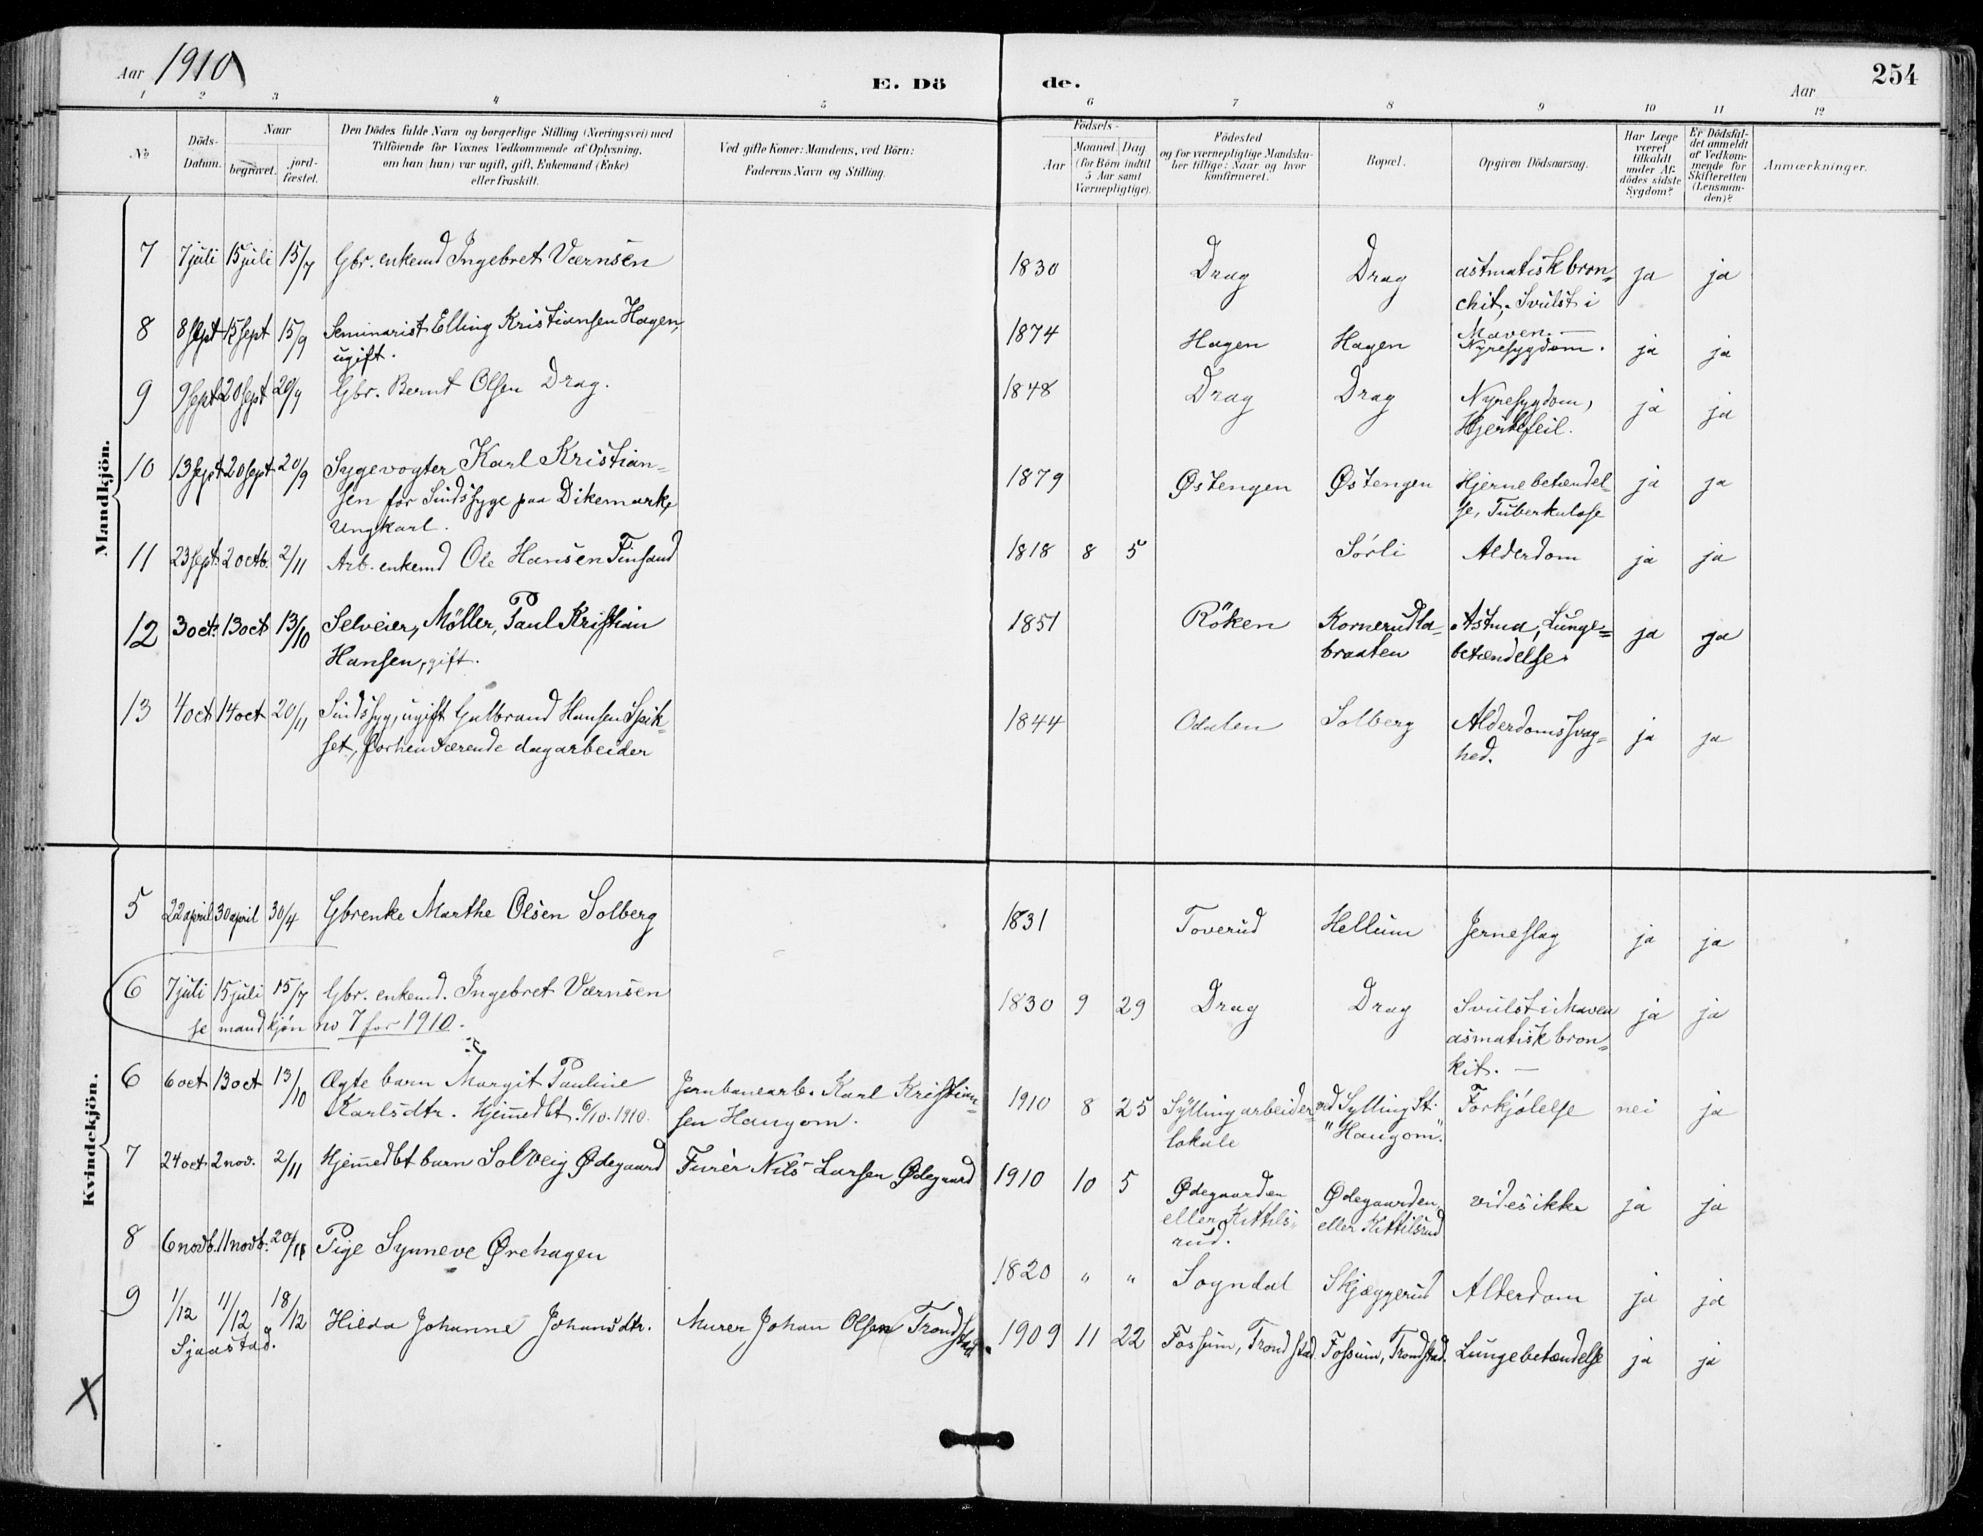 Aar 1910
E. Dö
de.
Aar
254
1 2 3 4 5 6 7 8 9 10 11 12
No
Döds-
Datum.
Naar
begravet.
jord-
fæstet.
Den Dödes fulde Navn og borgerlige Stilling (Næringsvei) med
Tilföiende for Voxnes Vedkommende af Oplysning,
om han (hun) var ugift, gift, Enkemand (Enke)
eller fraskilt.
Ved gifte Koner: Mandens, ved Börn:
Faderens Navn og Stilling.
Födsels-
Aar
Maaned. Dag
(for Börn indtil
5 Aar samt
Værnepligtige).
Födested
og for værnepligtige Mandska-
ber tillige: Naar og hvor
Konfirmeret.
Bopæl.
Opgiven Dödsaarsag.
Har Læge
været
tilkaldt
under Af-
dödes sidste
Sygdom?
Er Dödsfal-
det anmeldt
af Vedkom-
mende for
Skifteretten
(Lensman-
den)?
Anmærkninger.
Mandkjön.
7 7 juli 15 juli 15/7 Gbr. enkemd Ingebret Værnsen 1830 Drag Drag astmatisk bron= ja ja
chit, Svulst i
Maven. —
8 8 sept 15 sept 15/9 Seminarist Elling Kristiansen Hagen, 1874 Hagen Hagen Nyresygdom. ja ja
ugift.
9 9 sept 20 sept 20/9 Gbr. Bernt Olsen Drag. 1848 Drag Drag Nyresygdom, ja ja
Hjertefeil.
10 13 sept 20 sept 20/9 Sygevogter Karl Kristian= 1879 Østengen Østengen Hjernebetændel- ja ja
sen for Sindssyge paa Dikemark, se, Tuberkulose
Ungkarl.
11 23 sept. 2 octb. 2/11 Arb. enkemd Ole Hansen Finsand 1818 8 5 Sørli Alderdom ja ja
12 3 oct. 13 oct 13/10 Selveier, Möller, Paul Kristian 1851 Röken Kornerudla- Astma, Lunge= ja ja
Hansen, gift. braaten betændelse.
13 4 oct 14 oct 20/11 Sindssyg, ugift Gulbrand Hansen Spik- 1844 Odalen Solberg Alderdomssvag= ja ja
set, forhenværende dagarbeider hed.
Kvindekjön.
5 22 april 30 april 30/4 Gbrenke Marthe Olsen Solberg 1831 Toverud Hellum Jerneslag ja ja
6 7 juli 15 juli 15/7 Gbr. enkemd. Ingebret Værnsen 1830 9 29 Drag Drag Svulst i Maven ja ja
se mandkjön no 7 for 1910. asmatisk bron=
kit. —
6 6 oct 13 oct 13/10 Ægte barn Margit Pauline Jernbanearb. Karl Kristian= 1910 8 25 Sylling arbeider ved Sylling St. Forkjølelse nei ja
Karlsdtr. Hjemmedbt. 6/10. 1910. sen Haugom. lokale "Haugom".
7 24 oct 2 nov. 2/11 Hjemmedbt barn Solveig Ødegaard Furér Nils Larsen Ødegaard 1910 10 5 Ødegaarden Ødegaarden, vides ikke ja ja
eller Kittils- eller Kittilsrud
rud.
8 6 novb. 11 novb. 20/11 Pige Synneve Ørehagen 1820 " " Sogndal Skjæggerud Alderdom ja ja
9 1/12 11/12 18/12 Hilda Johanne Johansdtr. Murer Johan Olsen Trondstad. 1909 11 22 Fossum, Trondstad Fossum, Trondstad. Lungebetændelse ja ja
Sjaastad.
X